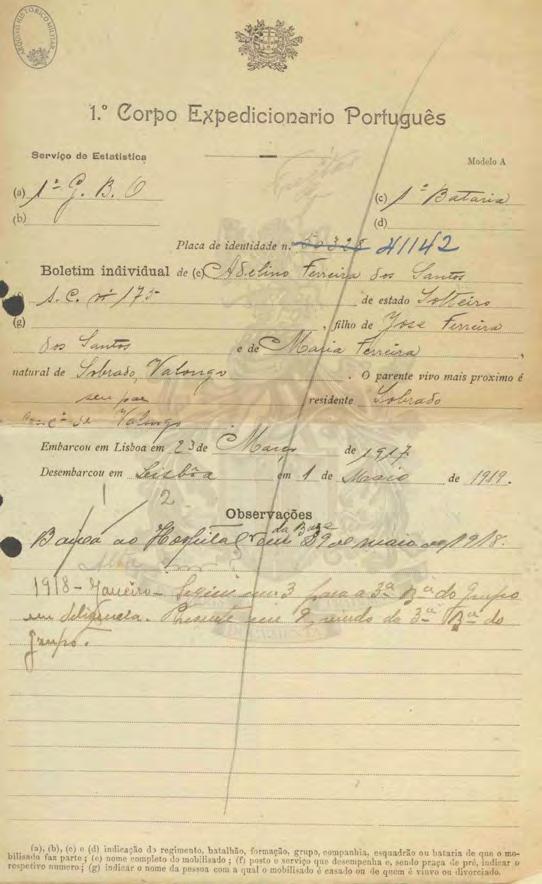 ARQUIVO HISTORICO MILITAR
1.º Corpo Expedicionario Português
Serviço de Estatistica
Modelo A
(a) 1º G. B. O
(c) 1ª Bataria
(b)
(d)
Placa de identidade n.º 50328 41142
Boletim individual de (e) Adelino Ferreira dos Santos
S.C. nº 175 de estado Solteiro
(g) , filho de José Ferreira
dos Santos e de Maria Ferreira ,
natural de Sobrado, Valongo . O parente vivo mais proximo é
seu pae residente Sobrado
de Valongo
Embarcou em Lisboa em 23 de Março de 1917
Desembarcou em Lisbôa em 1 de Maio de 1919.
1
2
Observações
Baixa ao Hospital da Base em 29 de maio de 1918.
Alta
1918 - Janeiro - Seguiu em 3 para a 3ª Bª do Grupo
em diligencia. Presente em 9, vindo da 3ª Bª do
Grupo.
(a), (b), (c) e (d) indicação do regimento, batalhão, formação, grupo, companhia, esquadrão ou bataria de que o mo-
bilisado faz parte; (e) nome completo do mobilisado; (f) posto e serviço que desempenha e, sendo praça de pré, indicar o
respetivo numero; (g) indicar o nome da pessoa com a qual o mobilisado é casado ou de quem é viuvo ou divorciado.